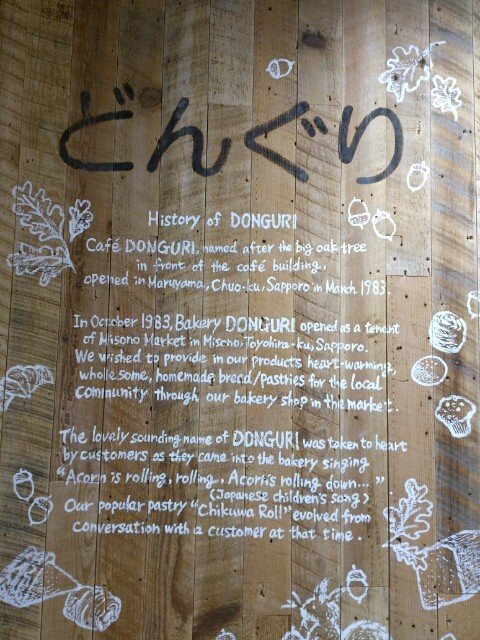 どんぐり
History of DONGURI
Café DONGURI, named after the big oak tree
in front of the café building,
opened in Maruyama, Chuo-ku, Sapporo in March 1983.
In October 1983, Bakery DONGURI opened as a tenant
of Misono Market in Misono, Toyohira-ku, Sapporo.
We wished to provide in our products heart-warming,
wholesome, homemade bread/pastries for the local
community through our bakery shop in the market.
The lovely sounding name of DONGURI was taken to heart
by customers as they came into the bakery singing
"Acorn is rolling, rolling.. Acorn is rolling down..."
(Japanese children's song)
Our popular pastry "Chikuwa Roll" evolved from
conversation with a customer at that time.